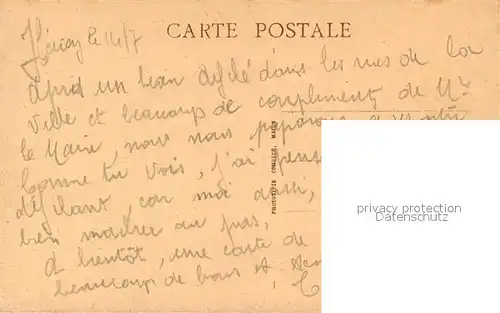 le 14/7
CARTE POSTALE
Après un beau défilé dans les rues de la
ville et beaucoup de compliment de Mr
le Maire, nous nous préparons à
Comme tu vois, j'ai pensé
défilant, car moi aussi,
bien marcher au pas,
A bientôt, une carte de
beaucoup de bons et
privacy protection
Datenschutz